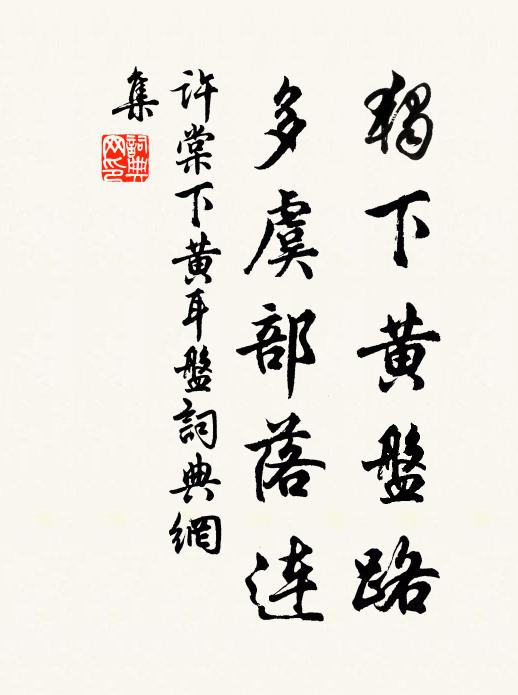 獨下黃盤路
多虞部落連
許棠下黃耳盤詞典網
集
詞典網印